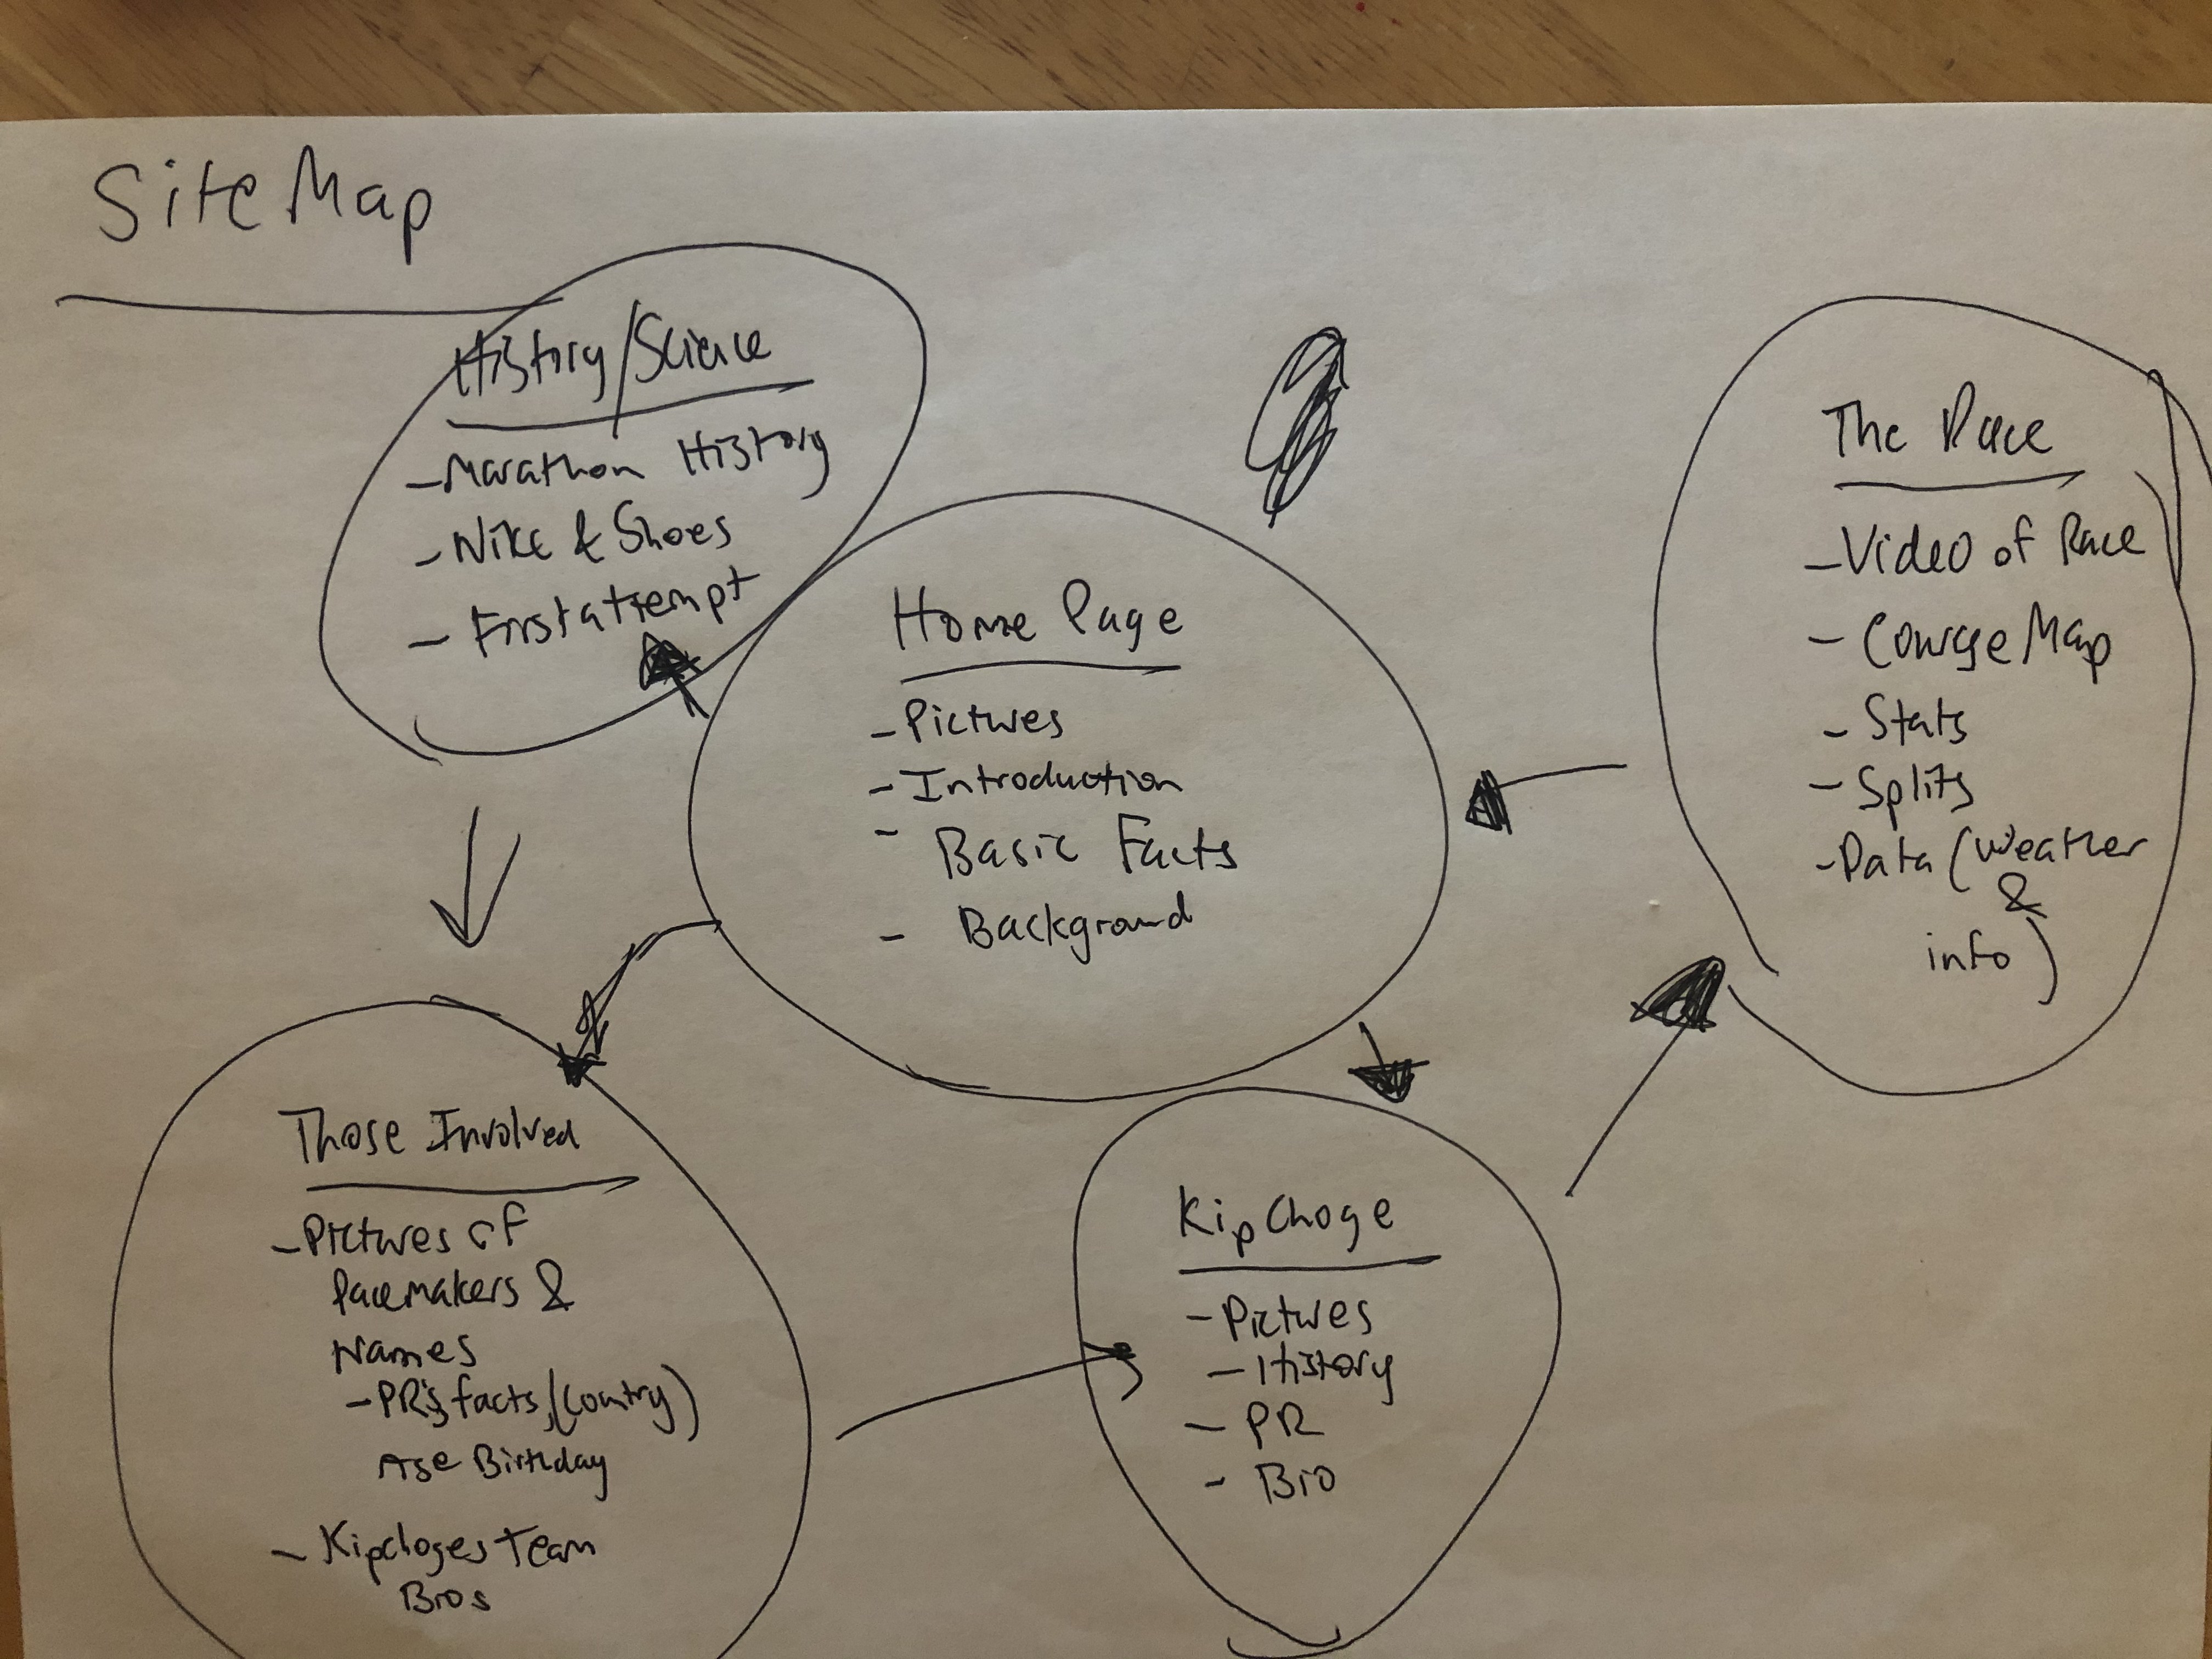 Site Map
History/Science
- Marathon History
- Nike & Shoes
- First attempt
Home Page
- Pictures
- Introduction
- Basic Facts
- Background
The Race
- Video of Race
- Course Map
- Stats
- Splits
- Data (Weather
&
info)
Those Involved
- Pictures of
Pacemakers &
Names
- PR's, facts, (Country)
Age Birthday
- Kipchoges Team
Bios
KipChoge
- Pictures
- History
- PR
- Bio